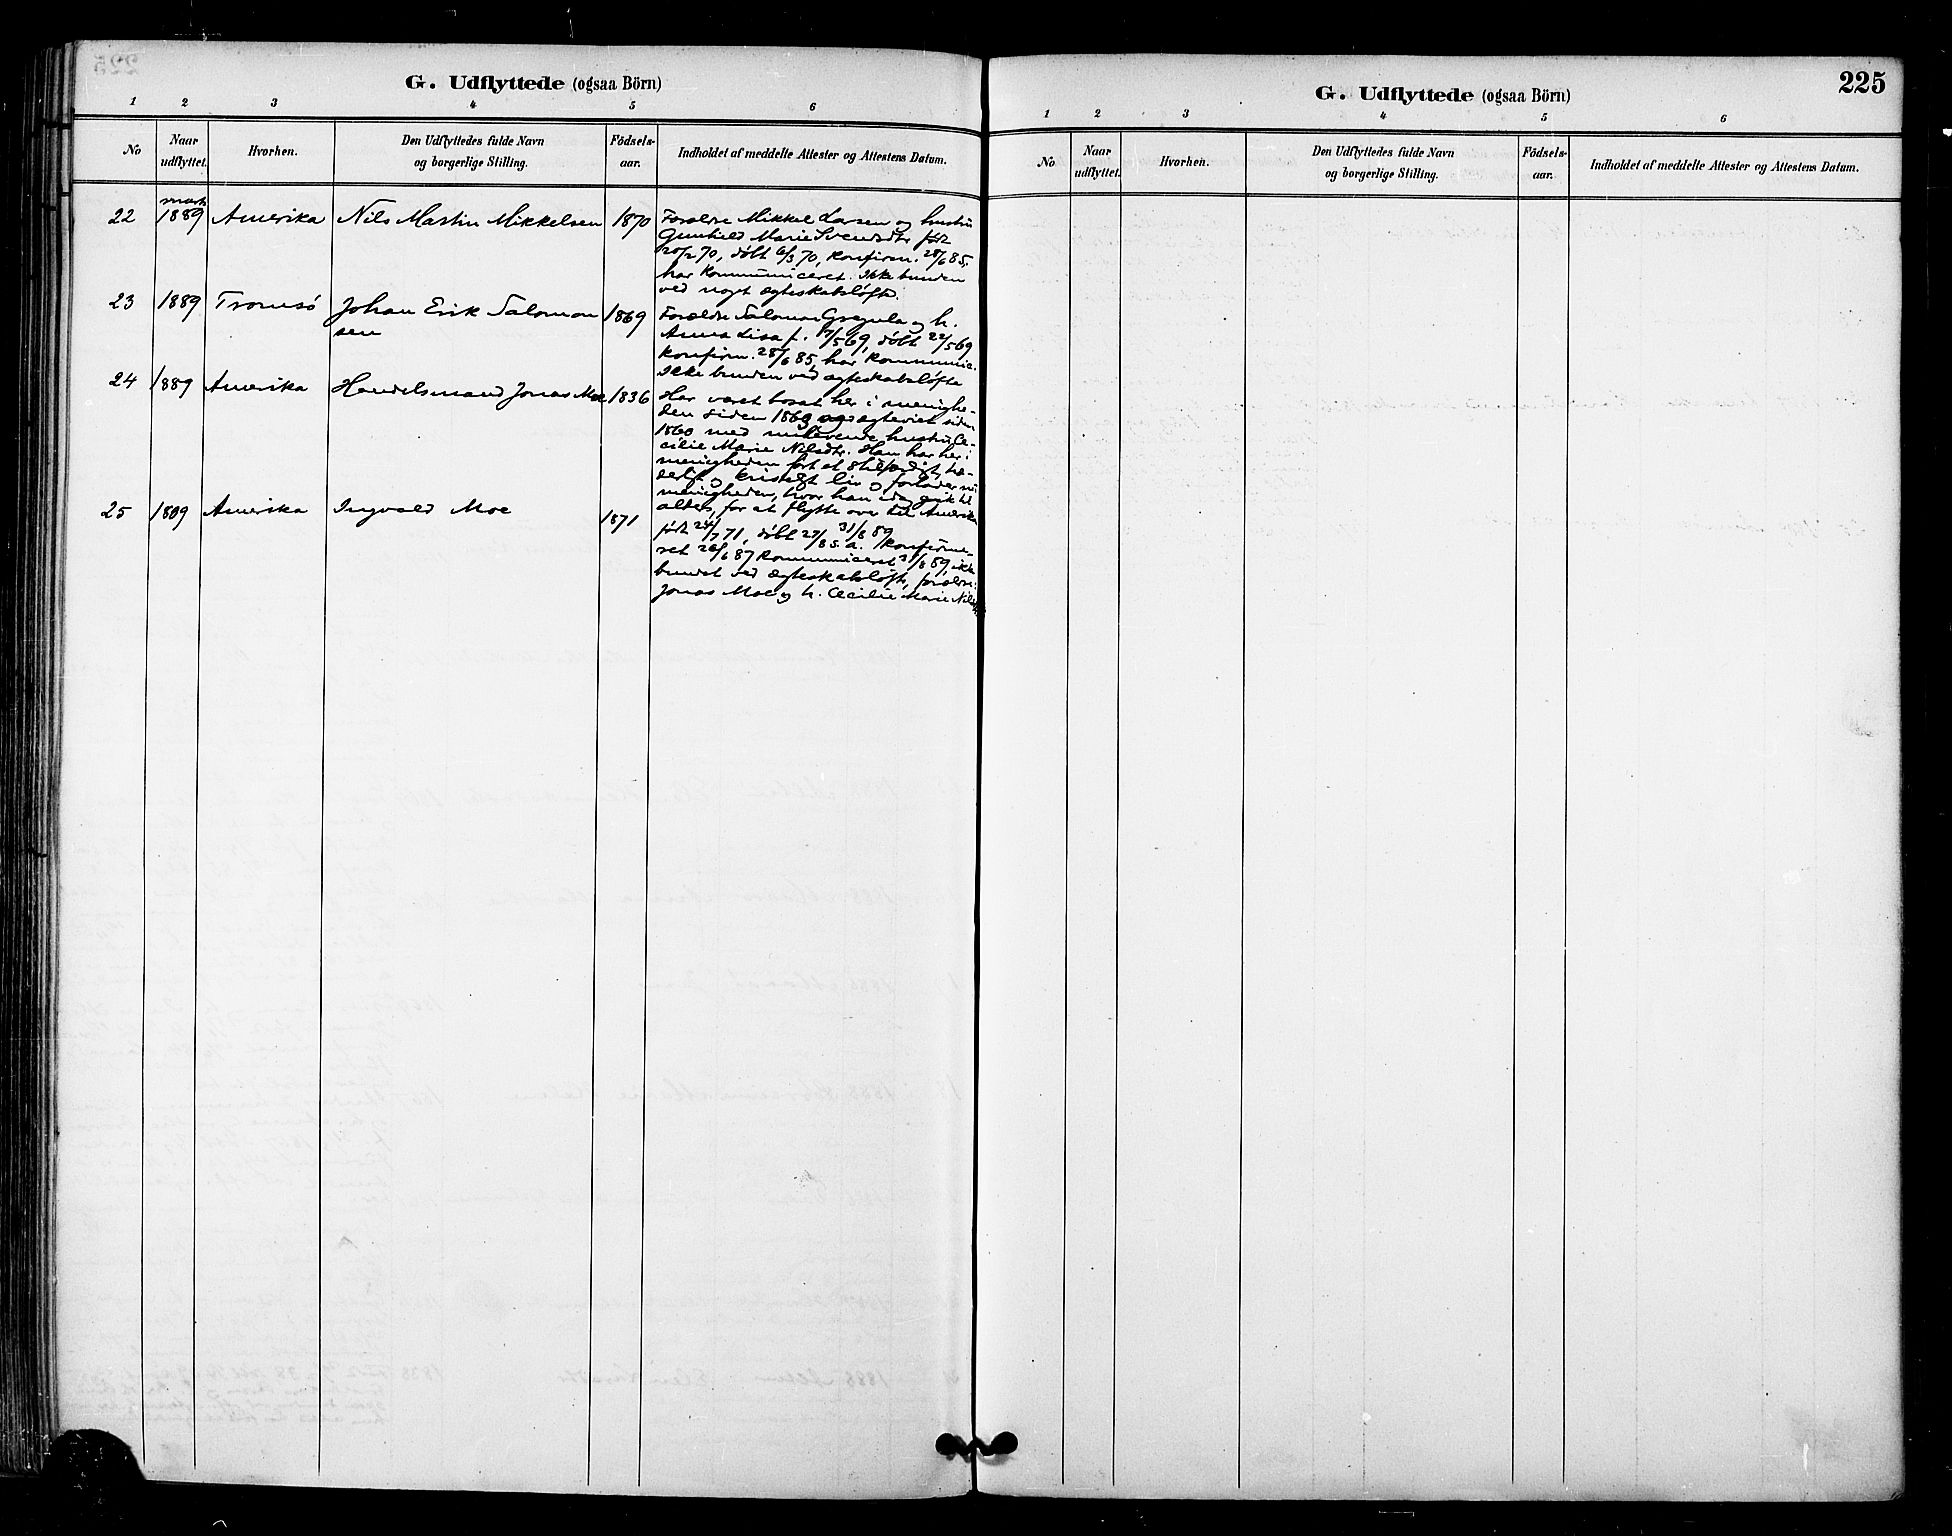 G. Udflyttede (ogsaa Börn)
1 2 3 4 5 6
No Naar udflyttet. Hvorhen. Den Udflyttedes fulde Navn og borgerlige Stilling. Födsels-aar. Indholdet af meddelte Attester og Attestens Datum.
22 marts 1889 Amerika Nils Martin Mikkelsen 1870 Forældre Mikkel Larsen og hustru
Gunhild Marie Svendsdtr. født
20/2 70, døbt 6/3 70, konfirm. 28/6 85,
har kommuniceret. Ikke bunden
ved noget ægteskabsløfte.
23 1889 Tromsö Johan Erik Salomon
sen 1869 Forældre Salomon Gregula og h.
Anna Lisa f. 17/5 69, døbt 22/5 69
konfirm. 28/6 85, har kommunic.
Ikke bunden ved ægteskabsløfte
24 1889 Amerika Handelsmand Jonas Moe 1836 Har været bosat her i menighe-
den siden 1860 og ægteviet siden
1860 med nulevende hustru Ce-
cilie Marie Nilsdtr. Han har her i
menigheden ført et stilfærdigt, hæ-
derligt og kristeligt liv og forlader nu
menigheden, hvor han idag gik til
alters, for at flytte over til Amerika
31/3 89
25 1889 Amerika Ingvald Moe 1871 født 24/7 71, døbt 27/8 s. a. konfirme-
ret 26/6 87 kommuniceret 31/3 89, ikke
bundet ved ægteskabsløfte, forældre:
Jonas Moe og h. Cecilie Marie Nilsdtr.
G. Udflyttede (ogsaa Börn)
225
1 2 3 4 5 6
No Naar udflyttet. Hvorhen. Den Udflyttedes fulde Navn og borgerlige Stilling. Födsels-aar. Indholdet af meddelte Attester og Attestens Datum.